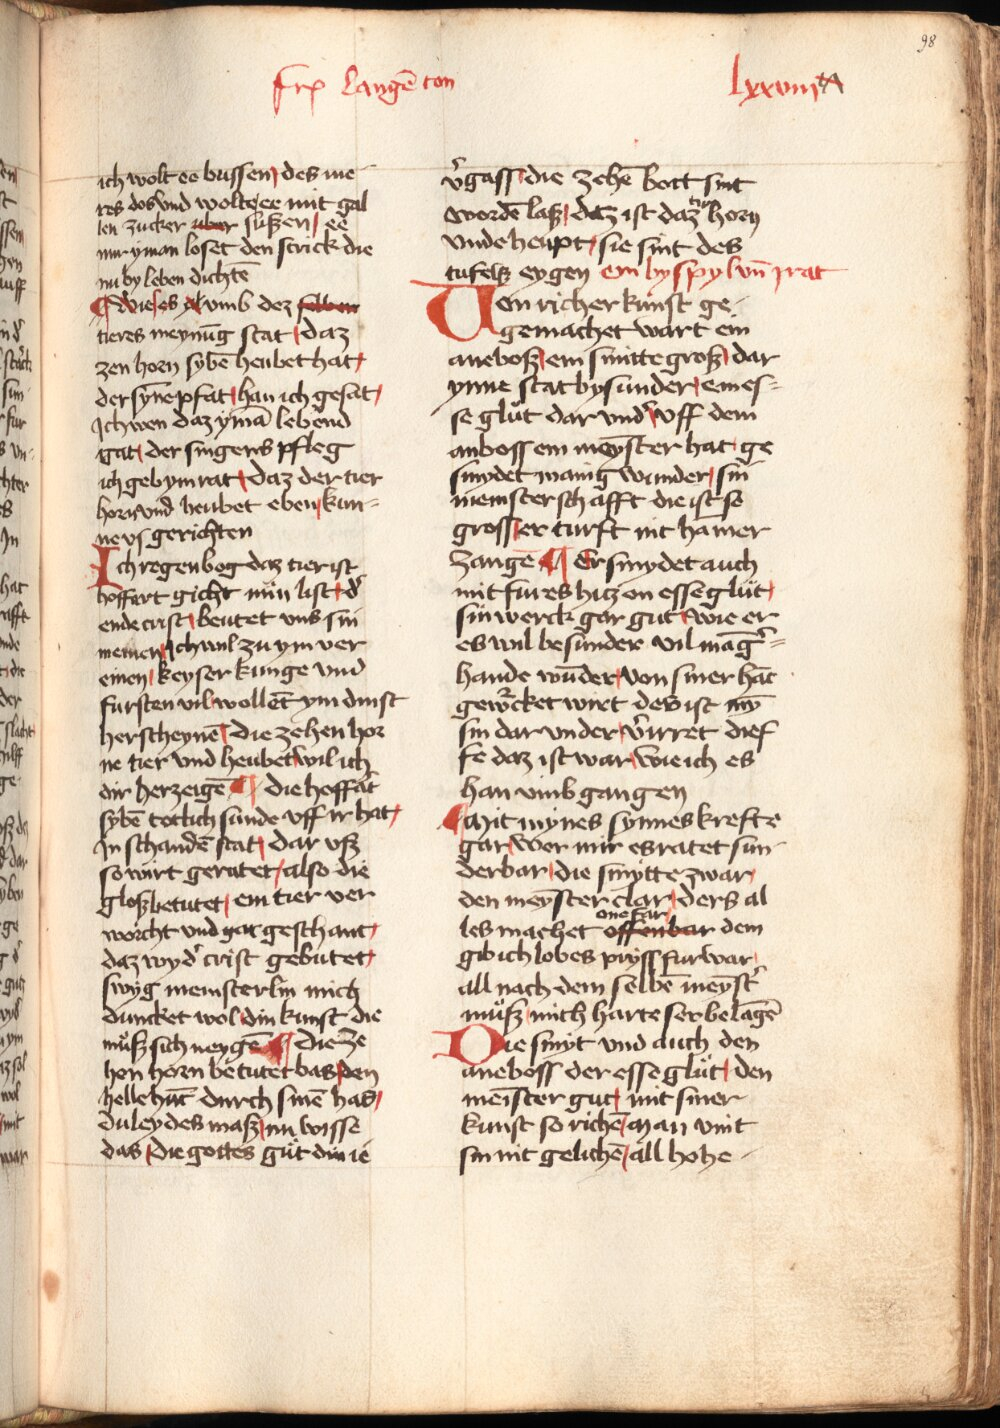 98
frō langē ton
lxxviii
ich wolt ee bussen des me
res dos vnd wolt ee mit gal
len zucker uber sussen / ee
mir yman loset den strick die
nu by leben dichtē
Wie es vmb dez selben
tieres meynūg stat / daz
zen horn sybē heubet hat /
der syne pfat / han ich gesat /
Ich wen daz ymā lebend
gat / der singens pfleg
ich geb ym rat / daz der tier
horn vnd heubet eben / kun-
ne vs gerichten
Ich regenbog daz tier ist
hoffart gicht min list / d'
ende crist / beutet vns sin
meinen / Ich wil zu ym ver
einen / keyser kunge vnd
fursten vil wollēt ym dinst
herscheynē / die zehen hor
ne tier vnd heubet wil ich
dir herzeigē die hoffāt
sybē totlich sunde vff ir hat /
In schandē stat / dar vsz
so wirt geratet / also die
glosz betutet / ein tier ver
worcht vnd gar geschant /
daz wyd' crist gebutet /
swyg meinsterlin mich
duncket wol / din kunst die
müsz sich neygē die ze
hen horn betutet bas / den
helle hūt durch sinē has /
du ley des masz / nu wisse
das / die gottes güt din ie
v'gass / die zehē bott sint
wordē lasz / daz ist daz horn
vnde heupt / sie sint des
tufels eygen ein byspyl vn̄ rat
Uon richer kunst ge-
gemachet wart ein
anebosz / ein smitte grosz / dar
ynne stat bysunder / eines-
se glüt dar vnd' / vff dem
anboss ein meyster hat / ge
smydet manig wunder / sin
meinsterschafft die ist so
gross / er turft nit hamer
zangē Er smydet auch
mit fures hitz on esse glüt /
sin werck gar gut / wie er
es wil besunder vil māg'-
hande wūder / von siner hāt
gewrcket wirt des ist my
sin dar vnder / v'irret dief
fe daz ist war / wie ich es
han vmb gangen
Mit mynes synnes krefte
gar / wer mir es ratet sun-
derbar / die smytte zwar /
den meyster clar / ders al
les machet offenbar dem
one far
gib ich lobes pryss fur war /
all nach dem selbē meyst'
müsz mich harte ser belāgē
Die smyt vnd auch den
aneboss der esse glüt / den
meinster gut / mit siner
kunst so richē / man vint
sin nit gelichē / all hohe -